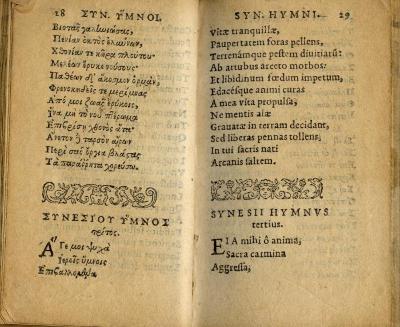 28 ΣΥΝ. ΥΜΝΟΙ.
Βιοτᾶς γαληνιώσας,
Πενίαν ἐκτὸς ἐλαύνων,
Χθονίαν τε κῆρα πλούτου.
Μελέων
Παθέων
μερίμνας
Ἀπό μοι ζωᾶς ἐρύκοις,
Ἵνα μὴ τὸ νοῦ πτέρωμα
Ἐπιβρίσῃ χθονὸς ἄτα·
Ἄνετον ἢ ταρσὸν αἴρων
Περὶ σᾶς ὄργια βλάστας
Τὰ πανάρρητα χορεύσω.
ΣΥΝΕΣΙΟΥ ΥΜΝΟΣ
τρίτος.
Ἄγε μοι ψυχὰ
Ἱεροῖς ὕμνοις
Ἐπιβαλλομένα
SYN. HYMNI. 29
Vitæ tranquillæ,
Paupertatem foras pellens,
Terrenámque pestem diuitiarū:
Ab artubus arceto morbos:
Et libidinum fœdum impetum,
Edacésque animi curas
A mea vita propulsa;
Ne mentis alæ
Grauatæ in terram decidant,
Sed liberas pennas tollens,
In tui sacris nati
Arcanis saltem.
SYNESII HYMNVS
tertius.
EIA mihi ô anima,
Sacra carmina
Aggressa,